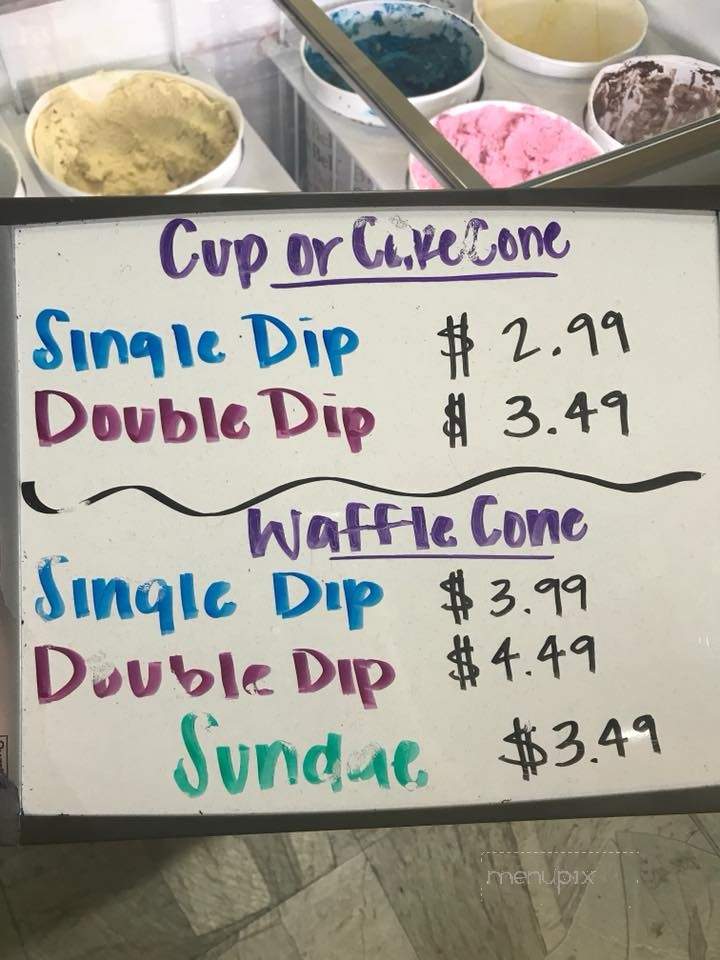 Cup or Cake Cone
Single Dip $ 2.99
Double Dip $ 3.49
Waffle Cone
Single Dip $ 3.99
Double Dip $ 4.49
Sundae $3.49
menupix